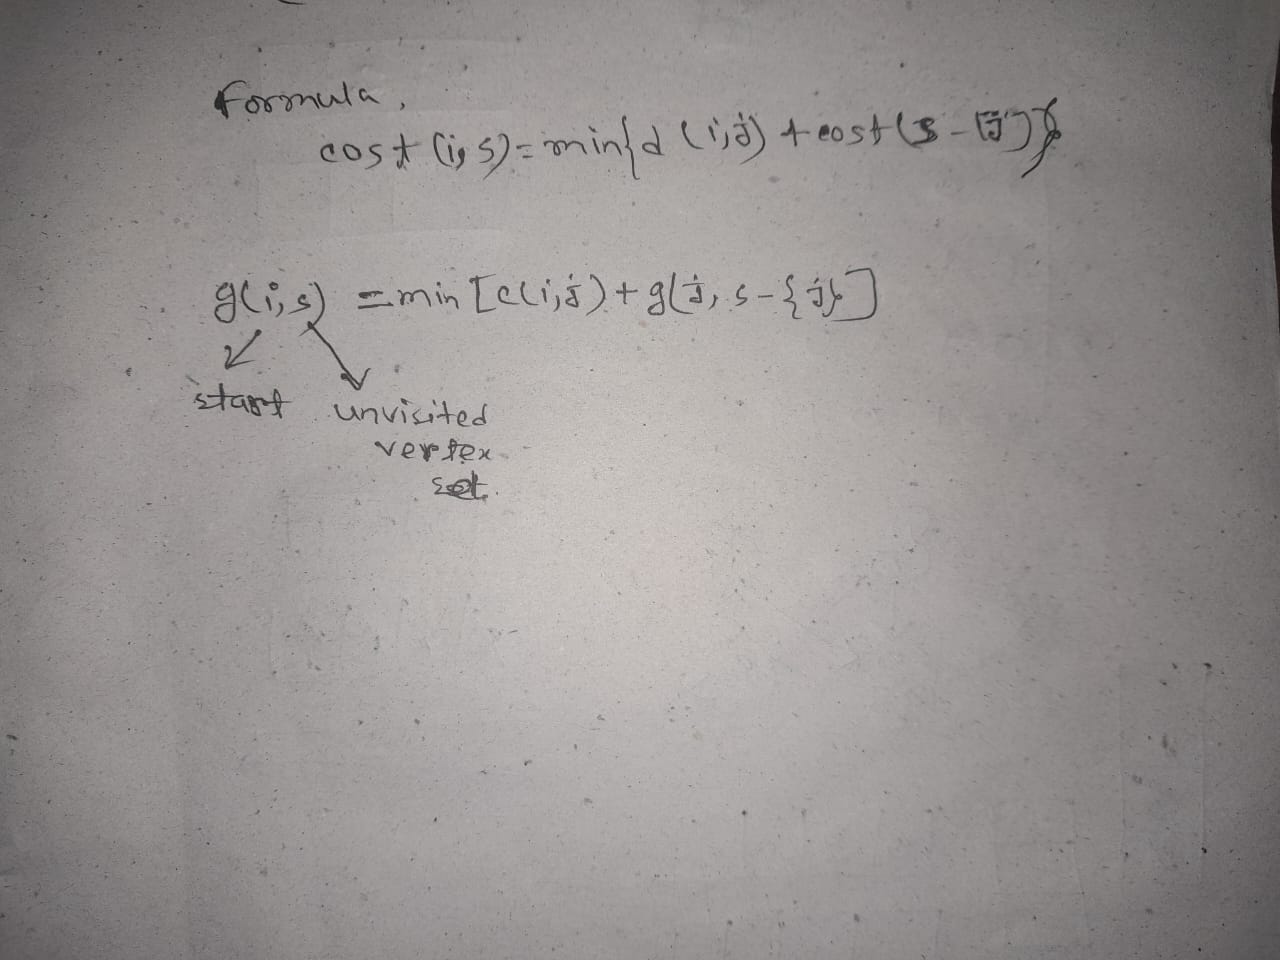 Formula,
cost (i, s) = min{d (i,j) + cost (s - (j))}
g(i,s) = min [c(i,j) + g(j, s-{j}]
start unvisited
vertex
set.